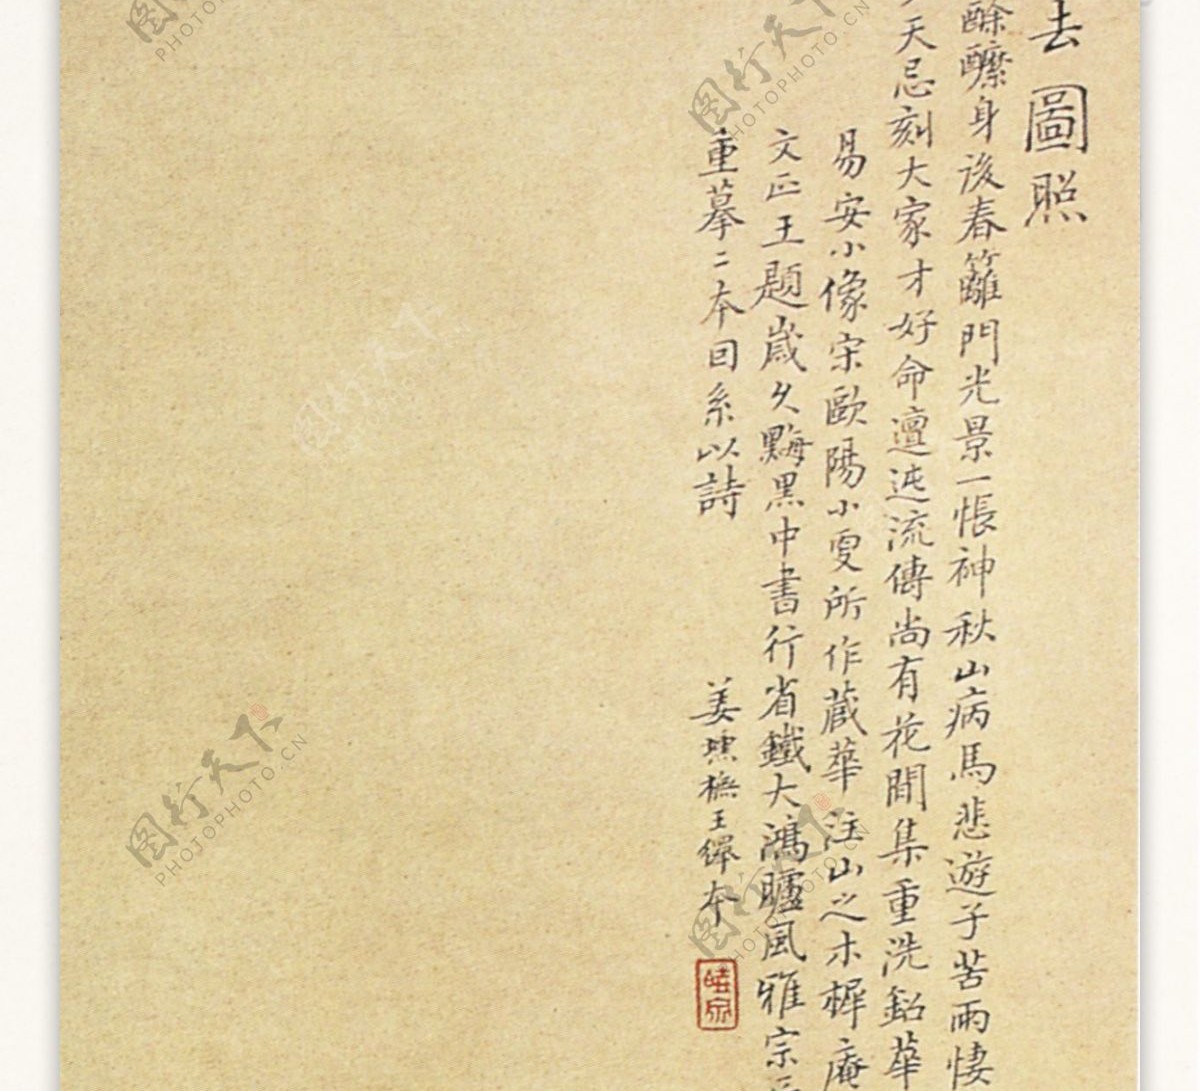 去圖照
酴醾身後春籬門光景一悵神秋山病馬悲遊子苦雨悽
天忌刻大家才好命邅迍流傳尚有花間集重洗鉛華
易安小像宋歐陽小叟所作藏華注山之木樨庵
文正王題歲久黣黑中書行省鐵大鴻臚風雅宗
重摹二本回系以詩
姜壎橅王鐸本